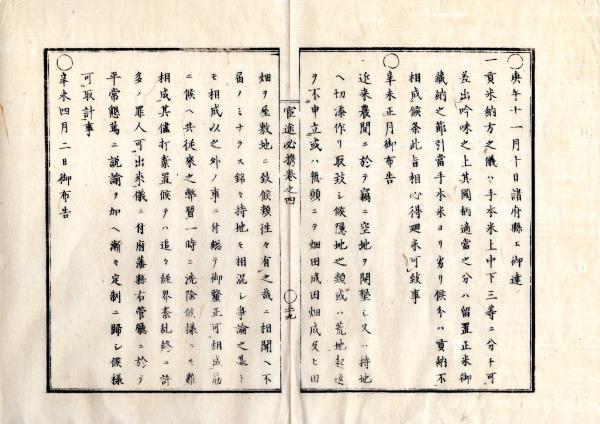 ○庚午十一月十日諸府縣エ御達
一貢米納方之儀ハ手本米上中下三等ニ分チ可
差出吟味之上其國柄適當之分ハ留置正米御
藏納之節引當手本米ヨリ劣リ候分ハ貢納不
相成候条此旨相心得廻米可致事
○辛未正月御布告
近来農間ニ於テ竊ニ空地ヲ開墾シ又ハ持地
ヘ切添作リ取致シ候隠地之類或ハ荒地起返
ヲ不申立或ハ無願ニテ畑田成田畑成及ヒ田
宦途必携巻之四
○三九
畑ヲ屋敷地ニ致候類往々有之哉ニ相聞ヘ不
届ノミナラス銘々持地モ相混シ爭論之基ト
モ相成以之外ノ事ニ付総テ御釐正可相成筋
ニ候ヘ共従来之弊習一時ニ洗除候様ニモ難
相成其儘打棄置候テハ追々経界紊乱終ニ許
多ノ罪人可出来儀ニ付府藩縣右管轄ニ於テ
平常懇篤ニ説諭ヲ加ヘ漸々定制ニ歸シ候様
可取計事
○辛未四月二日御布告